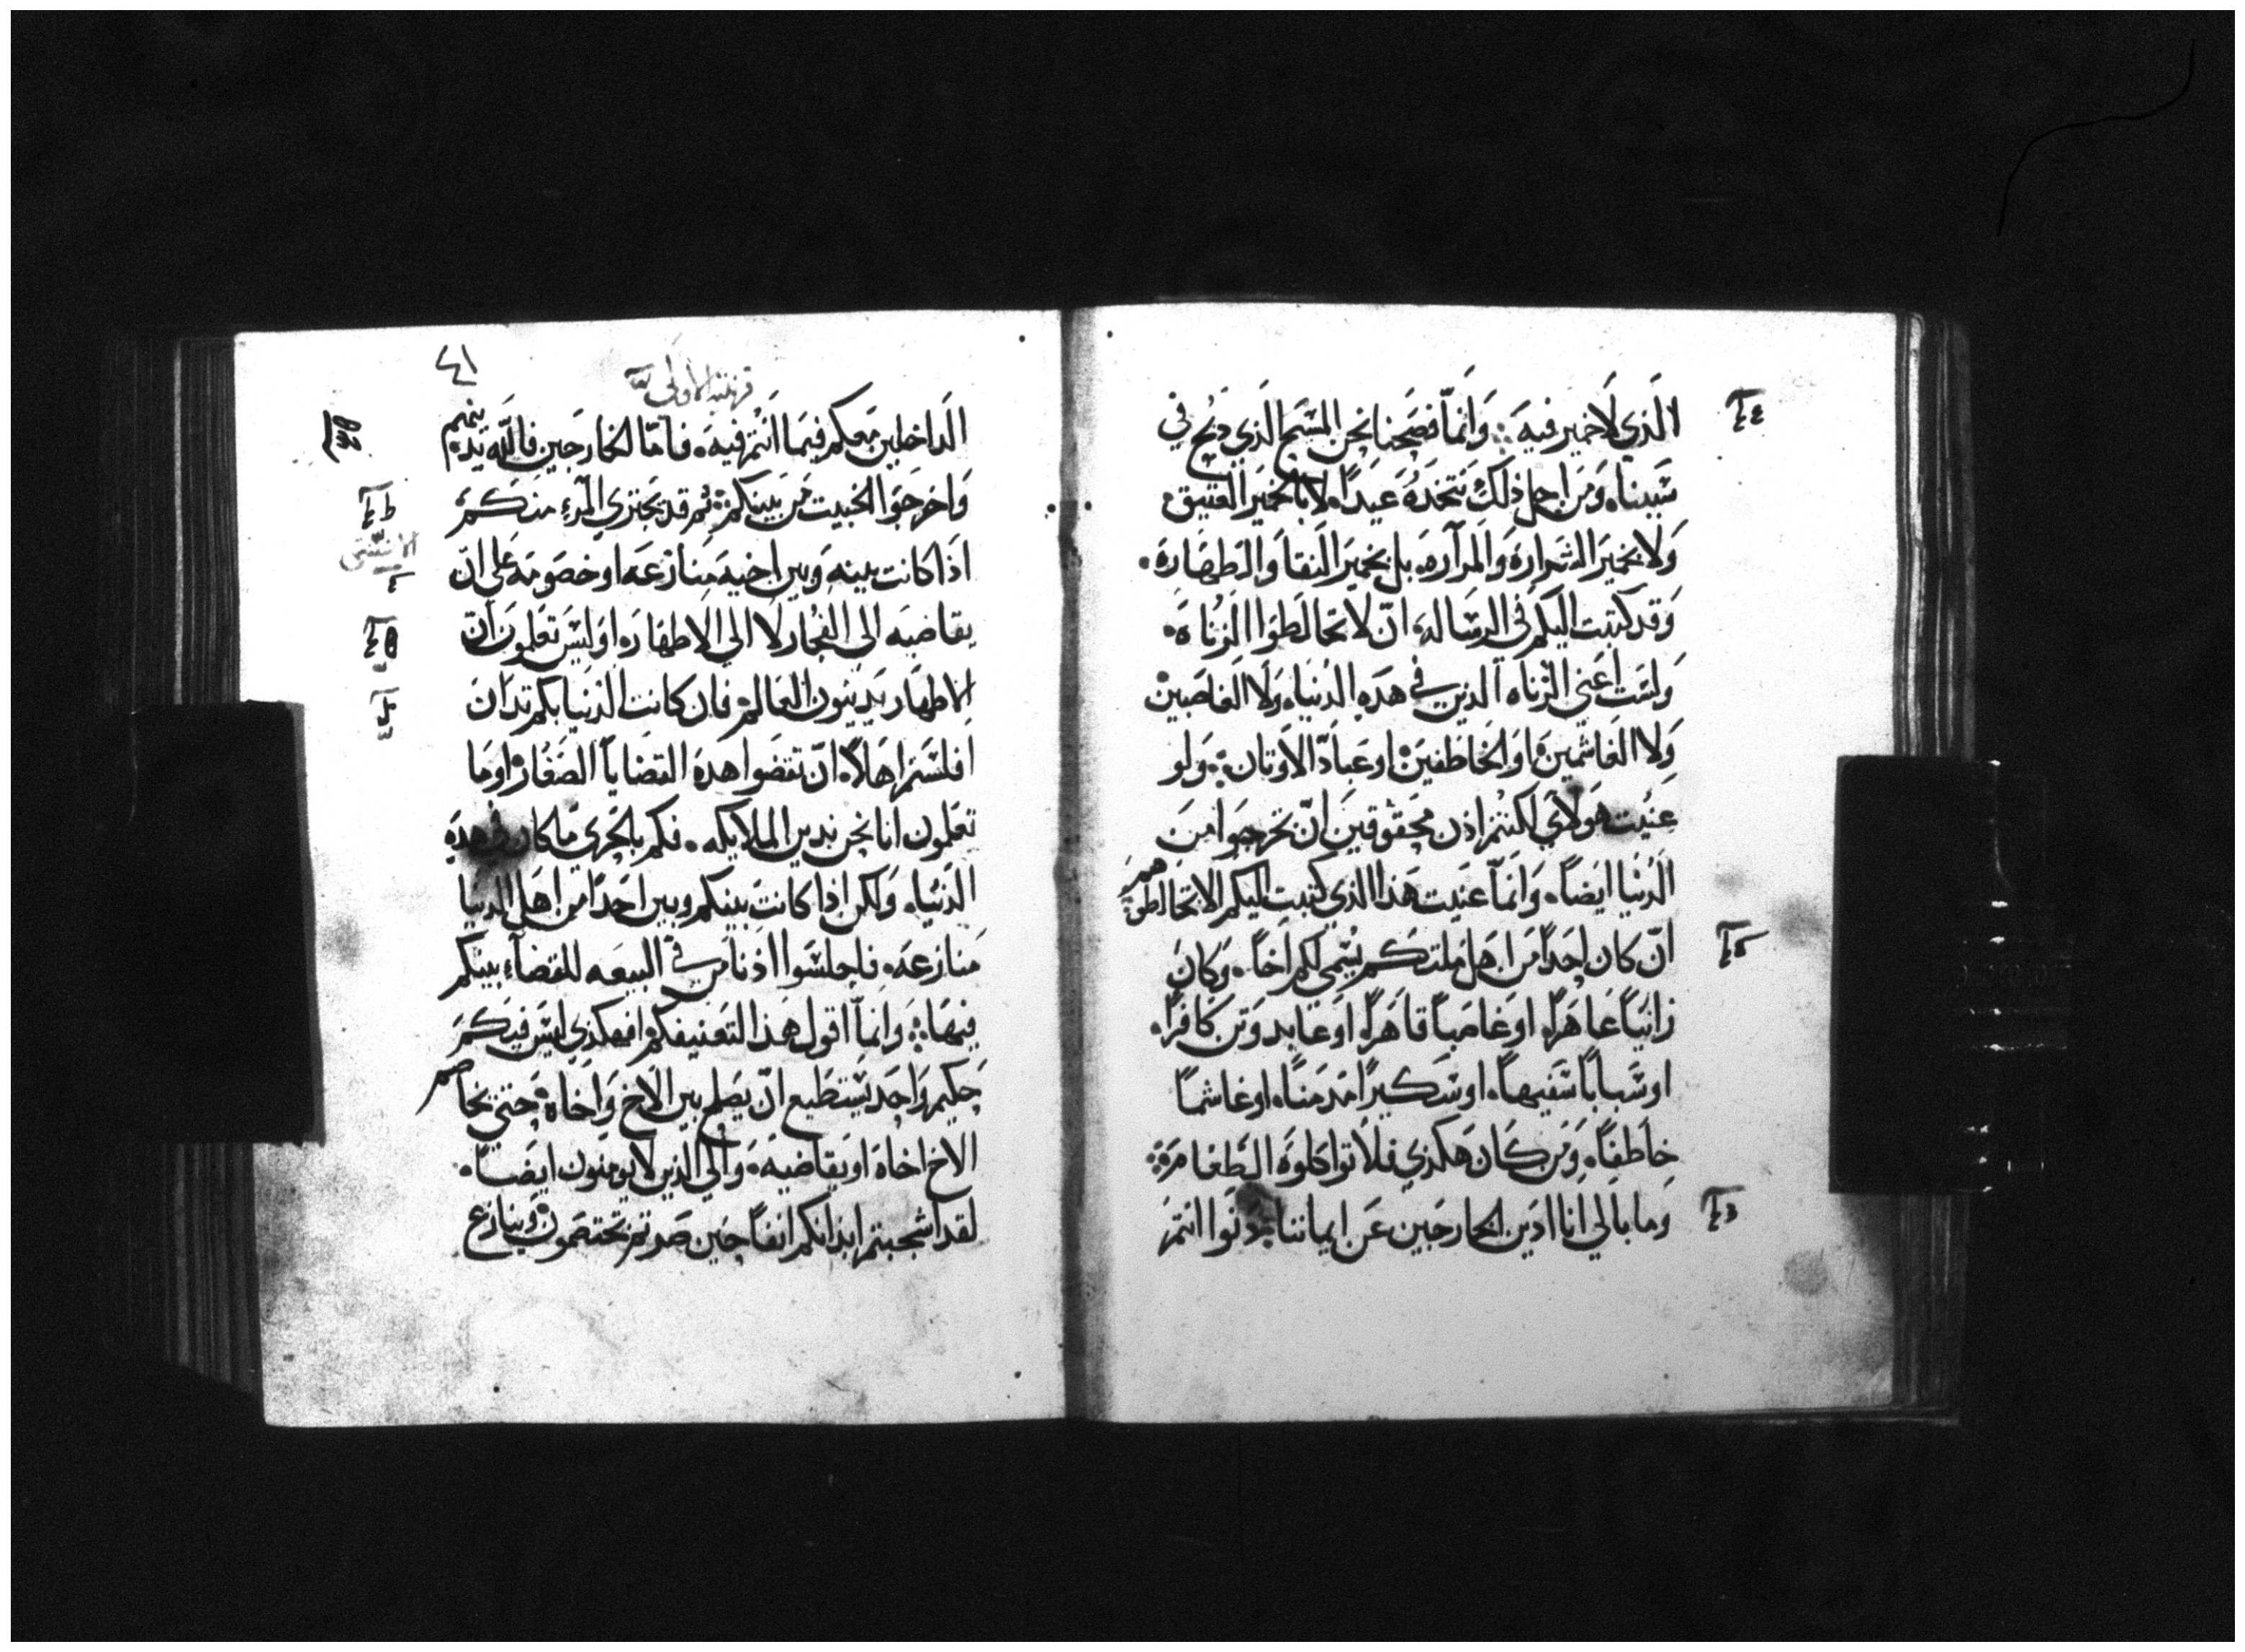 الذي لاخمير فيه وانما فصحنا نحن المسيح الذي دبح في
سببنا ومن اجل ذلك نتخده عيدا لا بالخمير العتيق
ولا بخمير الشراره والمراره بل بخمير النقا والطهاره
وقد كتبت اليكم في الرساله ان لا تخالطوا الزناه
ولست اعني الزناه الذين في هده الدنيا ولا الغاصبين
ولا الغاشمين او الخاطفين او عباد الاوتان ولو
عنيت هولاي لكنتم اذن محقوقين ان تخرجوا من
الدنيا ايضا وانما عنيت هذا الذي كتبت اليكم الا تخالطوهم
ان كان احدا من اهل ملتكم يسمي لكم اخا وكان
زانيا عاهرا او غاصبا قاهرا او عابد وتن كافرا
او سبابا سفيها او سكيرا مدمنا او غاشما
خاطفا ومن كان هكذي فلا تواكلوه الطعام
وما بالي انا ادين الخارجين عن ايماننا دنوا انتم
٤١
الداخلين معكم فيما انتم فيه فاما الخارجين فالله يدينهم
واخرجوا الخبيت من بينكم ثم قد يجتري المرء منكم
اذا كانت بينه وبين اخيه منازعه او خصومه على ان
يقاضيه الى الفجار لا الي الاطهار اوليس تعلمون ان
الاطهار يدينون العالم فان كانت الدنيا بكم تدان
افلستم اهلا ان تقضوا هده القضايا الصغار اوما
تعلمون انا نحن ندين الملايكه فكم بالحرى ما كان في هده
الدنيا ولكن اذا كانت بينكم وبين احدا من اهل الدنيا
منازعه فاجلسوا اذنا من في البيعه للقضاء بينكم
فيها وانما اقول هذا التعنيفكم افهكذي ليس فيكم
حكيم واحد يستطيع ان يصلح بين الاخ واخاه حتي يخاصم
الاخ اخاه او يقاضيه والي الذين لا يومنون ايضا
لقد اشجبتم ابدانكم انفا حين صرتم تختصمون وينازع